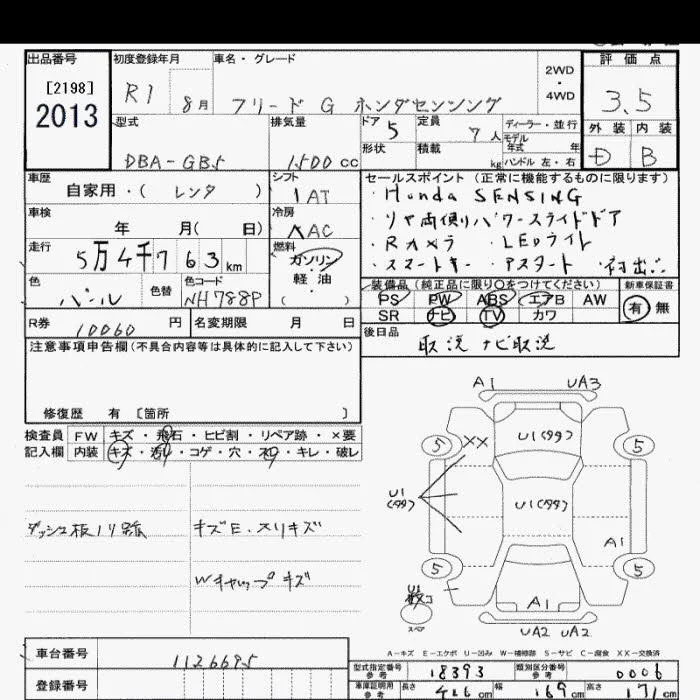 出品番号 初度登録年月 車名・グレード 2WD・4WD 評価点
[2198]
2013
R1 8月 フリード G ホンダセンシング 3.5
型式 排気量 ドア 定員 ディーラー・並行 外装 内装
DBA-GB5 1500cc 5 7人 モデル年式 年 D B
形状 積載 kg ハンドル 左・右
車歴 シフト セールスポイント (正常に機能するものに限ります)
自家用・( レンタ ) IAT
・Honda SENSING
車検 冷房
年 月( 日) AC
・リヤ両側パワースライドドア
・Rカメラ ・LEDライト
走行 燃料
5万4千763km ガソリン
軽・油
( )
・スマートキー ・アスタート
色 色替 色コード 装備品(純正品に限り○をつけてください) 新車保証書
パール NH788P
PS PW ABS エアB AW 有 無
SR ナビ TV カワ
R券 10060円 名変期限 月 日 後日品
取説 ナビ取説
注意事項申告欄(不具合内容等は具体的に記入して下さい)
修復歴 有 〔箇所 〕
検査員記入欄 FW キズ・飛石・ヒビ割・リペア跡・×要
内装 キズ・汚レ・コゲ・穴・スレ・キレ・破レ
ダッシュ板ノリ跡 キズE・スリキズ
Wキャップキズ
A1 UA3
5 XX U1(タタ) 5
U1(タタ) U1(タタ)
A1
5 5
A1
スペア
UA2 UA2
A-キズ E-エクボ U-凹み W-補修跡 S-サビ C-腐食 XX-交換済
車台番号 1126695
登録番号
型式指定番号 参考 18393 類別区分番号 参考 0006
車庫証明用 参考 長さ 426cm 幅 169cm 高さ 171cm